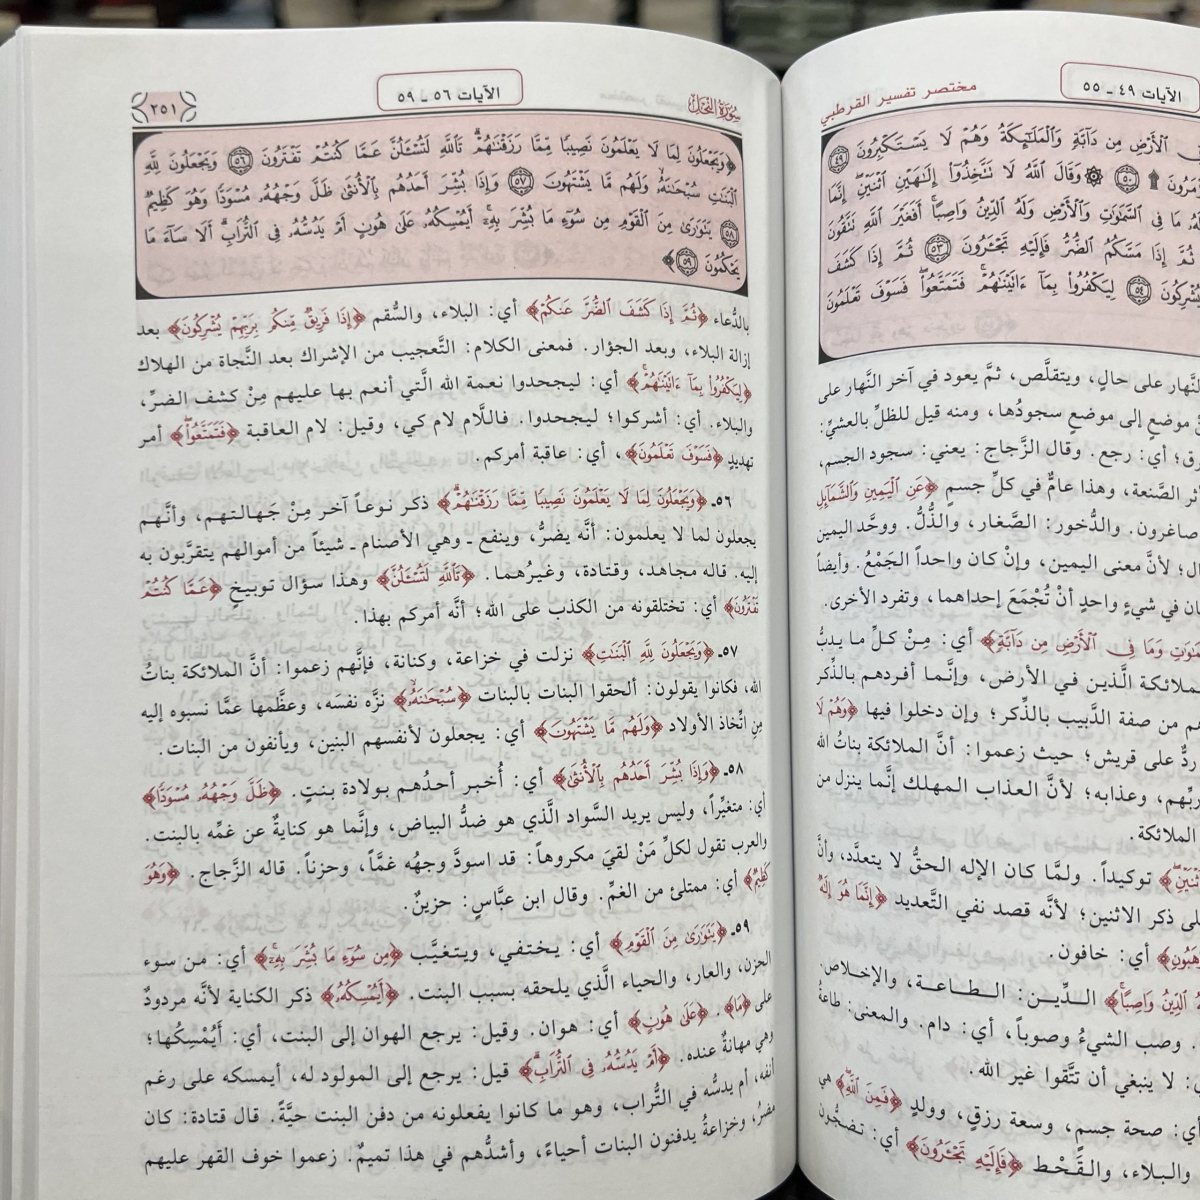 الآيات ٤٩ ـ ٥٥
مختصر تفسير القرطبي
ٱلْأَرْضِ مِن دَآبَّةٍ وَٱلْمَلَٰٓئِكَةُ وَهُمْ لَا يَسْتَكْبِرُونَ ﴿٤٩﴾
﴿٥٠﴾ ۞ وَقَالَ ٱللَّهُ لَا تَتَّخِذُوٓا۟ إِلَٰهَيْنِ ٱثْنَيْنِ إِنَّمَا
مَا فِى ٱلسَّمَٰوَٰتِ وَٱلْأَرْضِ وَلَهُ ٱلدِّينُ وَاصِبًا أَفَغَيْرَ ٱللَّهِ تَتَّقُونَ
ثُمَّ إِذَا مَسَّكُمُ ٱلضُّرُّ فَإِلَيْهِ تَجْـَٔرُونَ ﴿٥٣﴾ ثُمَّ إِذَا كَشَفَ
﴿٥٤﴾ لِيَكْفُرُوا۟ بِمَآ ءَاتَيْنَٰهُمْ فَتَمَتَّعُوا۟ فَسَوْفَ تَعْلَمُونَ
النَّهار على حالٍ، ويتقلَّص، ثمَّ يعود في آخر النَّهار على
موضعٍ إلى موضعٍ سجودُها، ومنه قيل للظلِّ بالعشيِّ:
أي: رجع. وقال الزَّجاج: يعني: سجود الجسم،
الصَّنعة، وهذا عامٌّ في كلِّ جسمٍ ﴿عَنِ ٱلْيَمِينِ وَٱلشَّمَآئِلِ
صاغرون. والدُّخور: الصَّغار، والذُّلُّ. ووحَّد اليمين
لأنَّ معنى اليمين، وإنْ كان واحداً الجَمْعُ. وأيضاً
في شيءٍ واحدٍ أنْ تُجْمَعَ إحداهما، وتفرد الأخرى.
وَمَا فِى ٱلْأَرْضِ مِن دَآبَّةٍ﴾ أي: مِنْ كلِّ ما يدبُّ
الَّذين في الأرض، وإنَّما أفردهم بالذِّكر
من صفة الدَّبيب بالذِّكر؛ وإن دخلوا فيها ﴿وَهُمْ لَا
ردٌّ على قريش؛ حيث زعموا: أنَّ الملائكة بناتُ الله
ربِّهم، وعذابه؛ لأنَّ العذاب المهلك إنَّما ينزل من
الملائكة.
توكيداً. ولمَّا كان الإله الحقُّ لا يتعدَّد، وأنَّ
ذكر الاثنين؛ لأنَّه قصد نفي التَّعديد ﴿إِنَّمَا هُوَ إِلَٰهٌ
أي: خافون.
ٱلدِّينُ وَاصِبًا﴾ الدِّين: الطاعة، والإخلاص.
وصب الشيءُ وصوباً، أي: دام. والمعنى: طاعةُ
لا ينبغي أن تتَّقوا غير الله.
أي: صحة جسمٍ، وسعة رزقٍ، وولدٍ ﴿فَمِنَ ٱللَّهِ﴾ هي
والبلاء، والقَحْط ﴿فَإِلَيْهِ تَجْـَٔرُونَ﴾ أي: تضجُّون
سُورَةُ النَّحْلِ
الآيات ٥٦ ـ ٥٩
٢٥١
﴿وَيَجْعَلُونَ لِمَا لَا يَعْلَمُونَ نَصِيبًا مِّمَّا رَزَقْنَٰهُمْ ۗ تَٱللَّهِ لَتُسْـَٔلُنَّ عَمَّا كُنتُمْ تَفْتَرُونَ ﴿٥٦﴾ وَيَجْعَلُونَ لِلَّهِ
ٱلْبَنَٰتِ سُبْحَٰنَهُۥ ۙ وَلَهُم مَّا يَشْتَهُونَ ﴿٥٧﴾ وَإِذَا بُشِّرَ أَحَدُهُم بِٱلْأُنثَىٰ ظَلَّ وَجْهُهُۥ مُسْوَدًّا وَهُوَ كَظِيمٌ
﴿٥٨﴾ يَتَوَٰرَىٰ مِنَ ٱلْقَوْمِ مِن سُوٓءِ مَا بُشِّرَ بِهِۦٓ ۚ أَيُمْسِكُهُۥ عَلَىٰ هُونٍ أَمْ يَدُسُّهُۥ فِى ٱلتُّرَابِ ۗ أَلَا سَآءَ مَا
يَحْكُمُونَ ﴿٥٩﴾﴾
بالدُّعاء ﴿ثُمَّ إِذَا كَشَفَ ٱلضُّرَّ عَنكُمْ﴾ أي: البلاء، والسُّقم ﴿إِذَا فَرِيقٌ مِّنكُم بِرَبِّهِمْ يُشْرِكُونَ﴾ بعد
إزالة البلاء، وبعد الجؤار. فمعنى الكلام: التَّعجيب من الإشراك بعد النَّجاة من الهلاك
﴿لِيَكْفُرُوا۟ بِمَآ ءَاتَيْنَٰهُمْ﴾ أي: ليجحدوا نعمة الله الَّتي أنعم بها عليهم مِنْ كشف الضرِّ،
والبلاء. أي: أشركوا؛ ليجحدوا. فاللَّام لام كي، وقيل: لام العاقبة ﴿فَتَمَتَّعُوا۟﴾ أمر
تهديدٍ ﴿فَسَوْفَ تَعْلَمُونَ﴾، أي: عاقبة أمركم.
٥٦ـ ﴿وَيَجْعَلُونَ لِمَا لَا يَعْلَمُونَ نَصِيبًا مِّمَّا رَزَقْنَٰهُمْ﴾ ذكر نوعاً آخر مِنْ جَهالتهم، وأنَّهم
يجعلون لما لا يعلمون: أنَّه يضرُّ، وينفع ـ وهي الأصنام ـ شيئاً من أموالهم يتقرَّبون به
إليه. قاله مجاهد، وقتادة، وغيرُهما. ﴿تَٱللَّهِ لَتُسْـَٔلُنَّ﴾ وهذا سؤال توبيخٍ ﴿عَمَّا كُنتُمْ
تَفْتَرُونَ﴾ أي: تختلقونه من الكذب على الله؛ أنَّه أمركم بهذا.
٥٧ـ ﴿وَيَجْعَلُونَ لِلَّهِ ٱلْبَنَٰتِ﴾ نزلت في خزاعة، وكنانة، فإنَّهم زعموا: أنَّ الملائكة بناتُ
الله، فكانوا يقولون: ألحقوا البنات بالبنات ﴿سُبْحَٰنَهُۥ﴾ نزَّه نفسَه، وعظَّمها عمَّا نسبوه إليه
مِنِ اتِّخاذ الأولاد ﴿وَلَهُم مَّا يَشْتَهُونَ﴾ أي: يجعلون لأنفسهم البنين، ويأنفون من البنات.
٥٨ـ ﴿وَإِذَا بُشِّرَ أَحَدُهُم بِٱلْأُنثَىٰ﴾ أي: أُخبر أحدُهم بولادة بنتٍ. ﴿ظَلَّ وَجْهُهُۥ مُسْوَدًّا﴾
أي: متغيِّراً، وليس يريد السَّواد الَّذي هو ضدُّ البياض، وإنَّما هو كنايةٌ عن غمِّه بالبنت.
والعرب تقول لكلِّ مَنْ لقيَ مكروهاً: قد اسودَّ وجهُه غمَّاً، وحزناً. قاله الزَّجاج. ﴿وَهُوَ
كَظِيمٌ﴾ أي: ممتلئ من الغمِّ. وقال ابن عبَّاسٍ: حزينٌ.
٥٩ـ ﴿يَتَوَٰرَىٰ مِنَ ٱلْقَوْمِ﴾ أي: يختفي، ويتغيَّب ﴿مِن سُوٓءِ مَا بُشِّرَ بِهِۦٓ﴾ أي: من سوء
الحزن، والعار، والحياء الَّذي يلحقه بسبب البنت. ﴿أَيُمْسِكُهُۥ﴾ ذكر الكناية لأنَّه مردودٌ
على ﴿مَا﴾. ﴿عَلَىٰ هُونٍ﴾ أي: هوان. وقيل: يرجع الهوان إلى البنت، أي: أَيُمْسِكُها؛
وهي مهانةٌ عنده. ﴿أَمْ يَدُسُّهُۥ فِى ٱلتُّرَابِ﴾ قيل: يرجع إلى المولود له، أيمسكه على رغم
أنفه، أم يدسُّه في التُّراب، وهو ما كانوا يفعلونه من دفن البنت حيَّةً. قال قتادة: كان
مضرُ، وخزاعةُ يدفنون البنات أحياءً، وأشدُّهم في هذا تميمٌ. زعموا خوف القهر عليهم